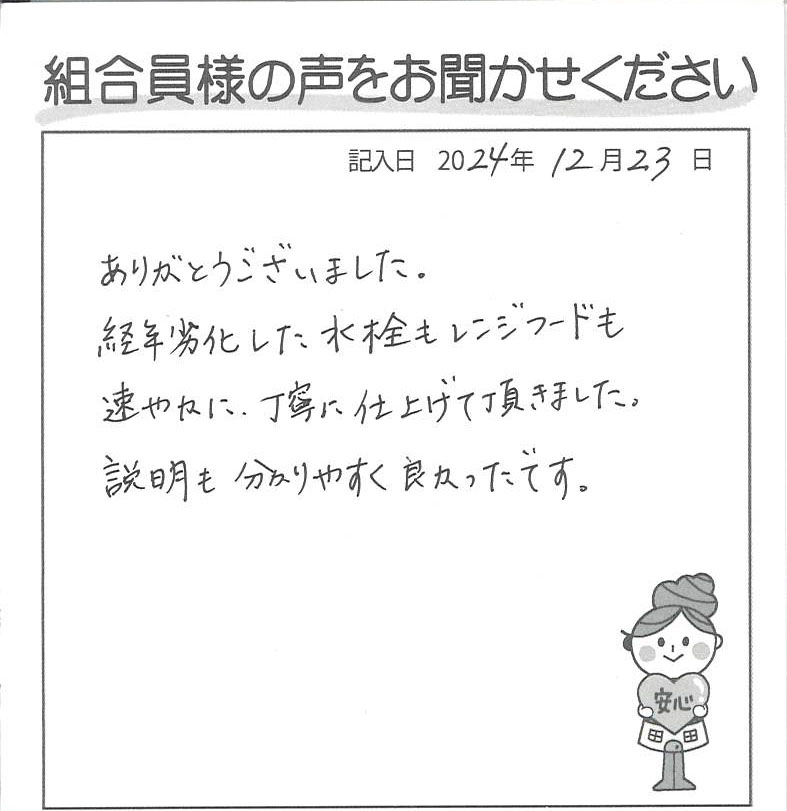 組合員様の声をお聞かせください
記入日 2024年 12月23日
ありがとうございました。
経年劣化した水栓もレンジフードも
速やかに、丁寧に仕上げて頂きました。
説明も分かりやすく良かったです。
安心